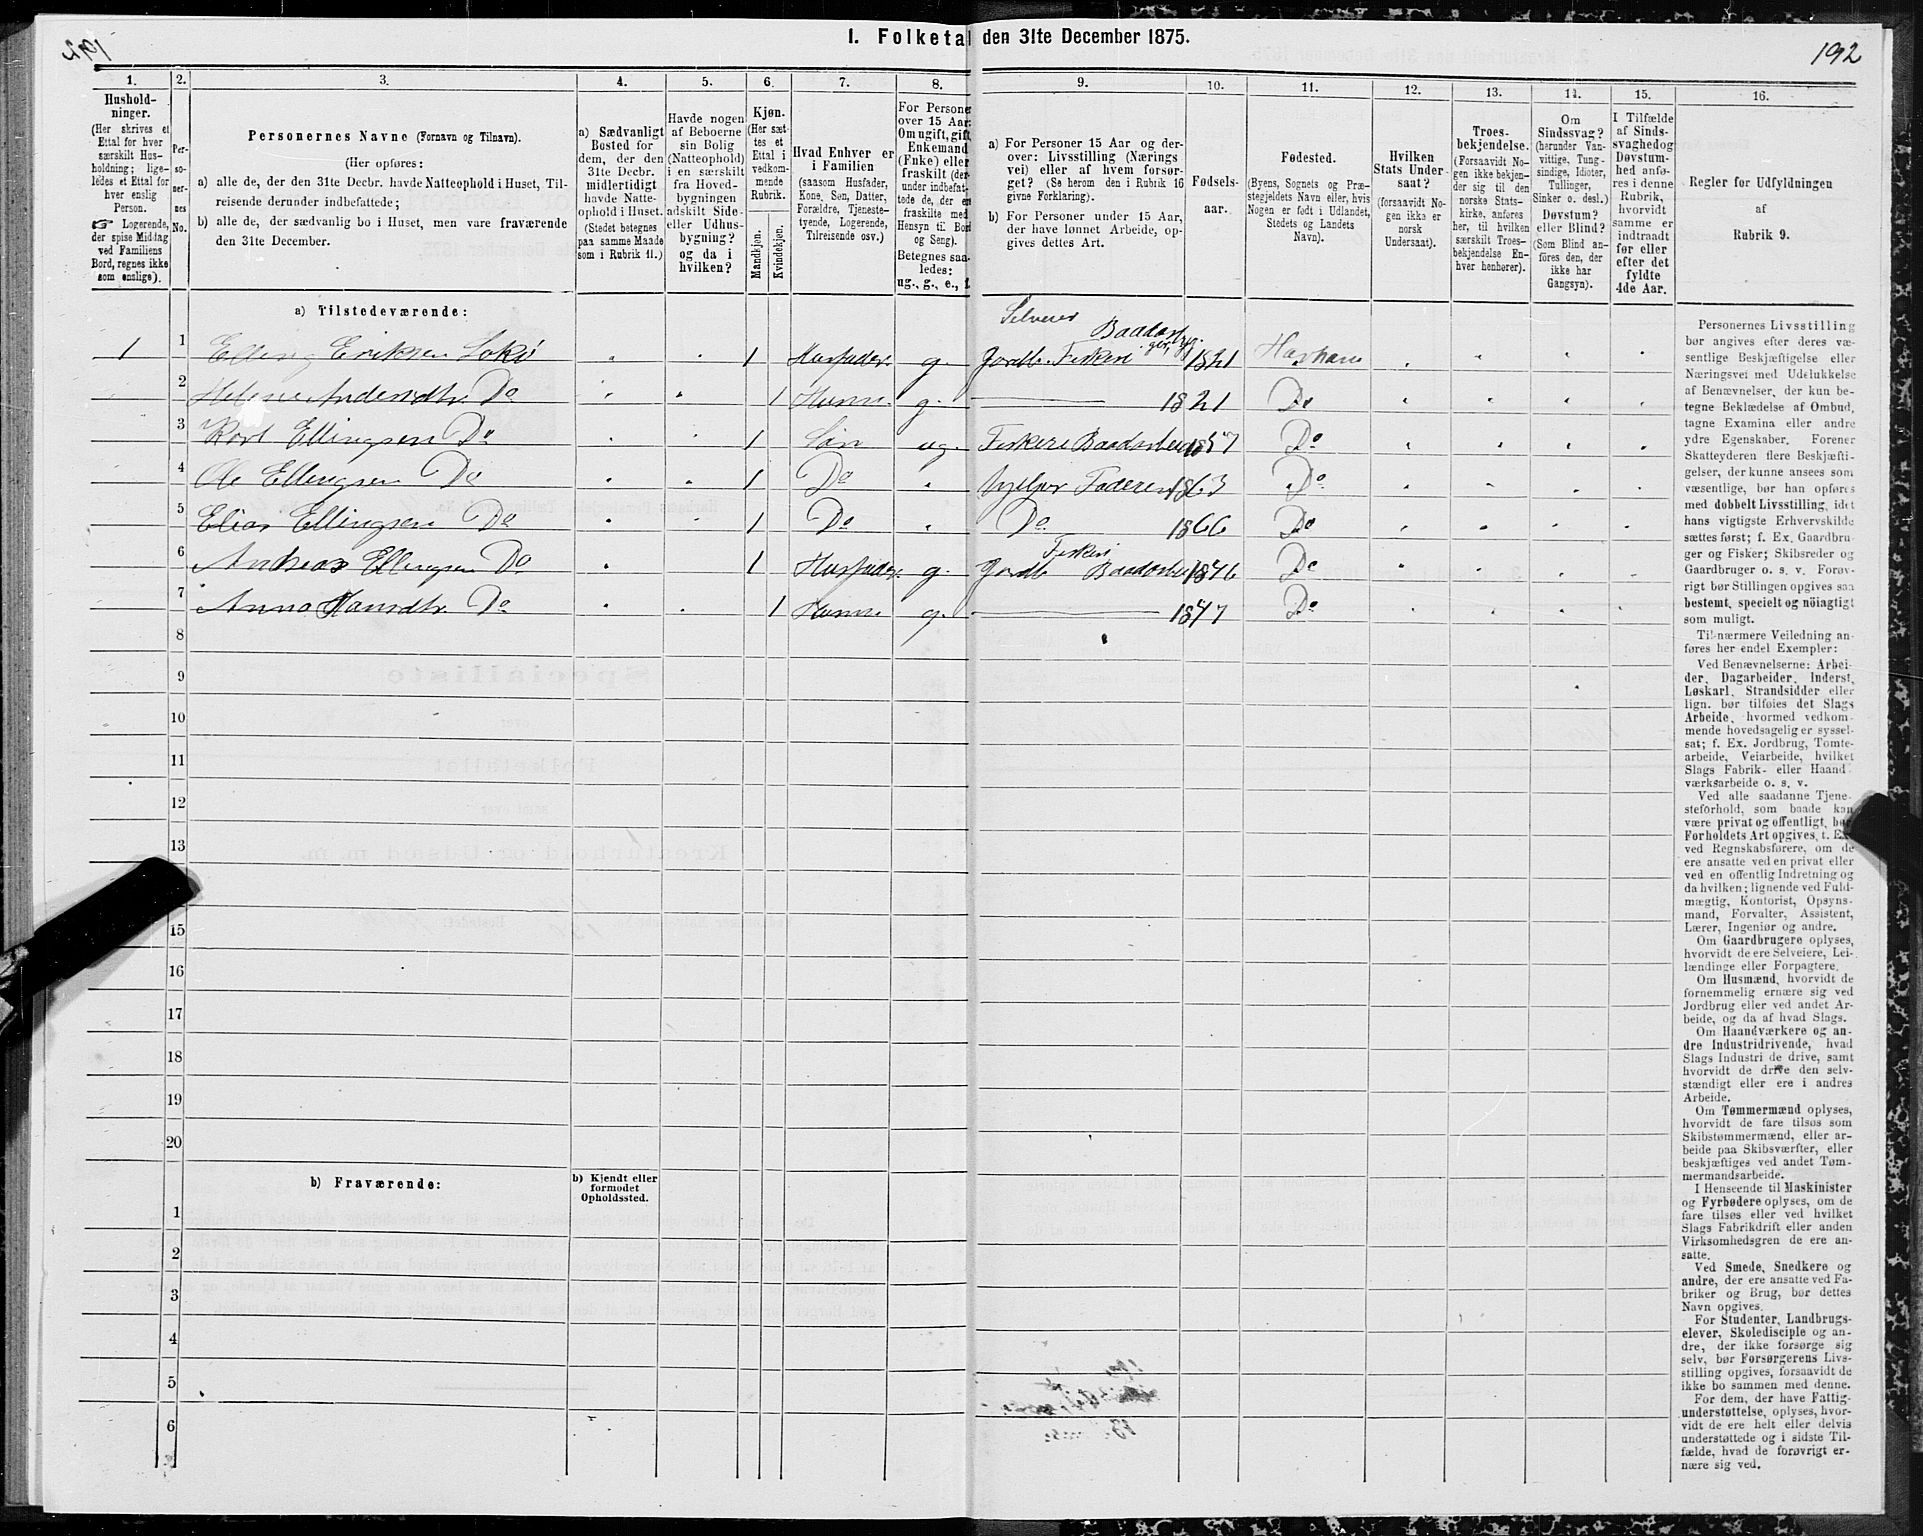 192
I. Folketal den 31te December 1875.
192
1.
Hushold-
ninger.
(Her skrives et
Ettal for hver
særskilt Hus-
holdning; lige-
ledes et Ettal for
hver enslig
Person.
☞ Logerende,
der spise Middag
ved Familiens
Bord, regnes ikke
som enslige).
2.
Per-
soner-
nes
No.
3.
Personernes Navne (Fornavn og Tilnavn).
(Her opføres:
a) alle de, der den 31te Decbr. havde Natteophold i Huset, Til-
reisende derunder indbefattede;
b) alle de, der sædvanlig bo i Huset, men vare fraværende
den 31te December.
4.
a) Sædvanligt
Bosted for
dem, der den
31te Decbr.
midlertidigt
havde Natte-
ophold i Huset.
(Stedet betegnes
paa samme Maade
som i Rubrik 11.)
5.
Havde nogen
af Beboerne
sin Bolig
(Natteophold)
i en særskilt
fra Hoved-
bygningen
adskilt Side-
eller Udhus-
bygning?
og da i
hvilken?
6.
Kjøn.
(Her sæt-
tes et
Ettal i
vedkom-
mende
Rubrik.
Mandkjøn.
Kvindekjøn.
7.
Hvad Enhver er
i Familien
(saasom Husfader,
Kone, Søn, Datter,
Forældre, Tjeneste-
tyende, Logerende,
Tilreisende osv.)
8.
For Personer
over 15 Aar:
Om ugift, gift,
Enkemand
(Enke) eller
fraskilt (der-
under indbefat-
tede de, der er
fraskilte med
Hensyn til Bord
og Seng).
Betegnes saa-
ledes:
ug., g., e., f.
9.
a) For Personer 15 Aar og der-
over: Livsstilling (Nærings
vei) eller af hvem forsør-
get? (Se herom den i Rubrik 16
givne Forklaring).
b) For Personer under 15 Aar,
der have lønnet Arbeide, op-
gives dettes Art.
10.
Fødsels-
aar.
11.
Fødested.
(Byens, Sognets og Præ-
stegjeldets Navn eller, hvis
Nogen er født i Udlandet,
Stedets og Landets
Navn).
12.
Hvilken
Stats Under
saat?
(forsaavidt No-
gen ikke er
norsk
Undersaat).
13.
Troes-
bekjendelse.
(Forsaavidt No-
gen ikke bekjen-
der sig til den
norske Stats-
kirke, anføres
her, til hvilken
særskilt Troes-
bekjendelse En-
hver henhører).
14.
Om
Sindssvag?
(herunder Van-
vittige, Tung-
sindige, Idioter,
Tullinger,
Sinker o. desl.)
Døvstum?
eller Blind?
(Som Blind an-
føres den, der
ikke har
Gangsyn).
15.
I Tilfælde
af Sinds-
svaghed og
Døvstum-
hed anfø-
res i denne
Rubrik,
hvorvidt
samme er
indtraadt
før eller
efter det
fyldte
4de Aar.
16.
Regler før Udfyldningen
af
Rubrik 9.
a) Tilstedeværende:
Selveier Baadas byg.
1 1 Elling Eriksen Sokø 1 Husfader g. Jordb. Fiskeri 1821 Harham
2 Andersdtr. Do 1 Kone g. 1821 Do
3 Ellingsen Do 1 Søn ug. Fiskeri 1857 Do
4 Ole Ellingsen Do 1 Do Hjelper Faderen 1863 Do
5 Elias Ellingsen Do 1 Do Do 1866 Do
Fiskeri
6 Andreas Ellingsen Do 1 Husfader g. Jordb. 1846 Do
7 Anna Hansdtr. Do 1 Kone g. 1847 Do
8
9
10
11
12
13
15
16
17
18
19
20
b) Fraværende:
b) Kjendt eller
formodet
Opholdssted.
1
2
3
4
5
6
Personernes Livsstilling
bør angives efter deres væ-
sentlige Beskjæftigelse eller
Næringsvei med Udelukkelse
af Benævnelser, der kun be-
tegne Beklædelse af Ombud,
tagne Examina eller andre
ydre Egenskaber. Forener
Skatteyderen flere Beskjæfti-
gelser, der kunne ansees som
væsentlige, bør han opføres
med dobbelt Livsstilling, idet
hans vigtigste Erhvervskilde
sættes først; f. Ex. Gaardbru-
ger og Fisker; Skibsreder og
Gaardbruger o. s. v. Forøv-
rigt bør Stillingen opgives saa
bestemt, specielt og nöiagtigt
som muligt.
Til nærmere Veiledning an-
føres her endel Exempler:
Ved Benævnelserne: Arbei-
der, Dagarbeider, Inderst,
Løskarl, Strandsidder eller
lign. bør tilføies det Slags
Arbeide, hvormed vedkom-
mende hovedsagelig er syssel-
sat; f. Ex. Jordbrug, Tomte-
arbeide, Veiarbeide, hvilket
Slags Fabrik- eller Haand-
værksarbeide o. s. v.
Ved alle saadanne Tjene-
steforhold, som baade kan
være privat og offentligt, bør
Forholdets Art opgives, t. Ex.
ved Regnskabsførere, om de
ere ansatte ved en privat eller
ved en offentlig Indretning og
da hvilken; lignende ved Fuld-
mægtig, Kontorist, Opsyns-
mand, Forvalter, Assistent,
Lærer, Ingeniør og andre.
Om Gaardbrugere oplyses,
hvorvidt de ere Selveiere, Lei-
lændinge eller Forpagtere.
Om Husmænd, hvorvidt de
fornemmelig ernære sig ved
Jordbrug eller ved andet Ar-
beide, og da af hvad Slags.
Om Haandværkere og an-
dre Industridrivende, hvad
Slags Industri de drive, samt
hvorvidt de drive den selv-
stændigt eller ere i andres
Arbeide.
Om Tømmermænd oplyses,
hvorvidt de fare tilsøs som
Skibstømmermænd, eller ar-
beide paa Skibsværfter, eller
beskjæftiges ved andet Tøm-
mermandsarbeide.
I Henseende til Maskinister
og Fyrbødere oplyses, om de
fare tilsøs eller ved hvilket
Slags Fabrikdrift eller anden
Virksomhedsgren de ere an-
satte.
Ved Smede, Snedkere og
andre, der ere ansatte ved Fa-
briker og Brug, bør dettes
Navn opgives.
For Studenter, Landbrugs-
elever, Skoledisciple og an-
dre, der ikke forsørge sig
selv, bør Forsørgerens Livs-
stilling opgives, forsaavidt de
ikke bo sammen med denne.
For dem, der have Fattig-
understøttelse, oplyses, hvor-
vidt de ere helt eller delvis
understøttede og i sidste Til-
fælde, hvad de forøvrigt er-
nære sig ved.